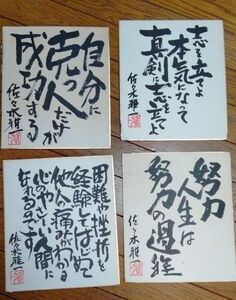 自分に
克つ人だけが
成功する
佐々木雅一
志を立てよ
本気になって
真剣に志を立てよ
佐々木雅一
困難や挫折を
経験してはじめて
他人の痛みがわかる
心のやさしい人間に
なれるのです
佐々木雅一
努力
人生は
努力の過程
佐々木雅一